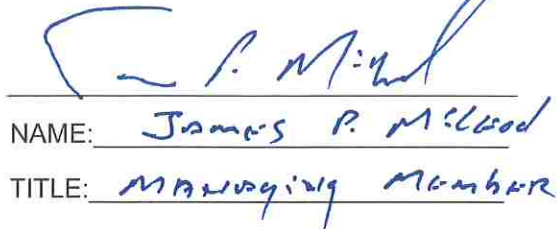 NAME: James P. McLeod
TITLE: Managing Member